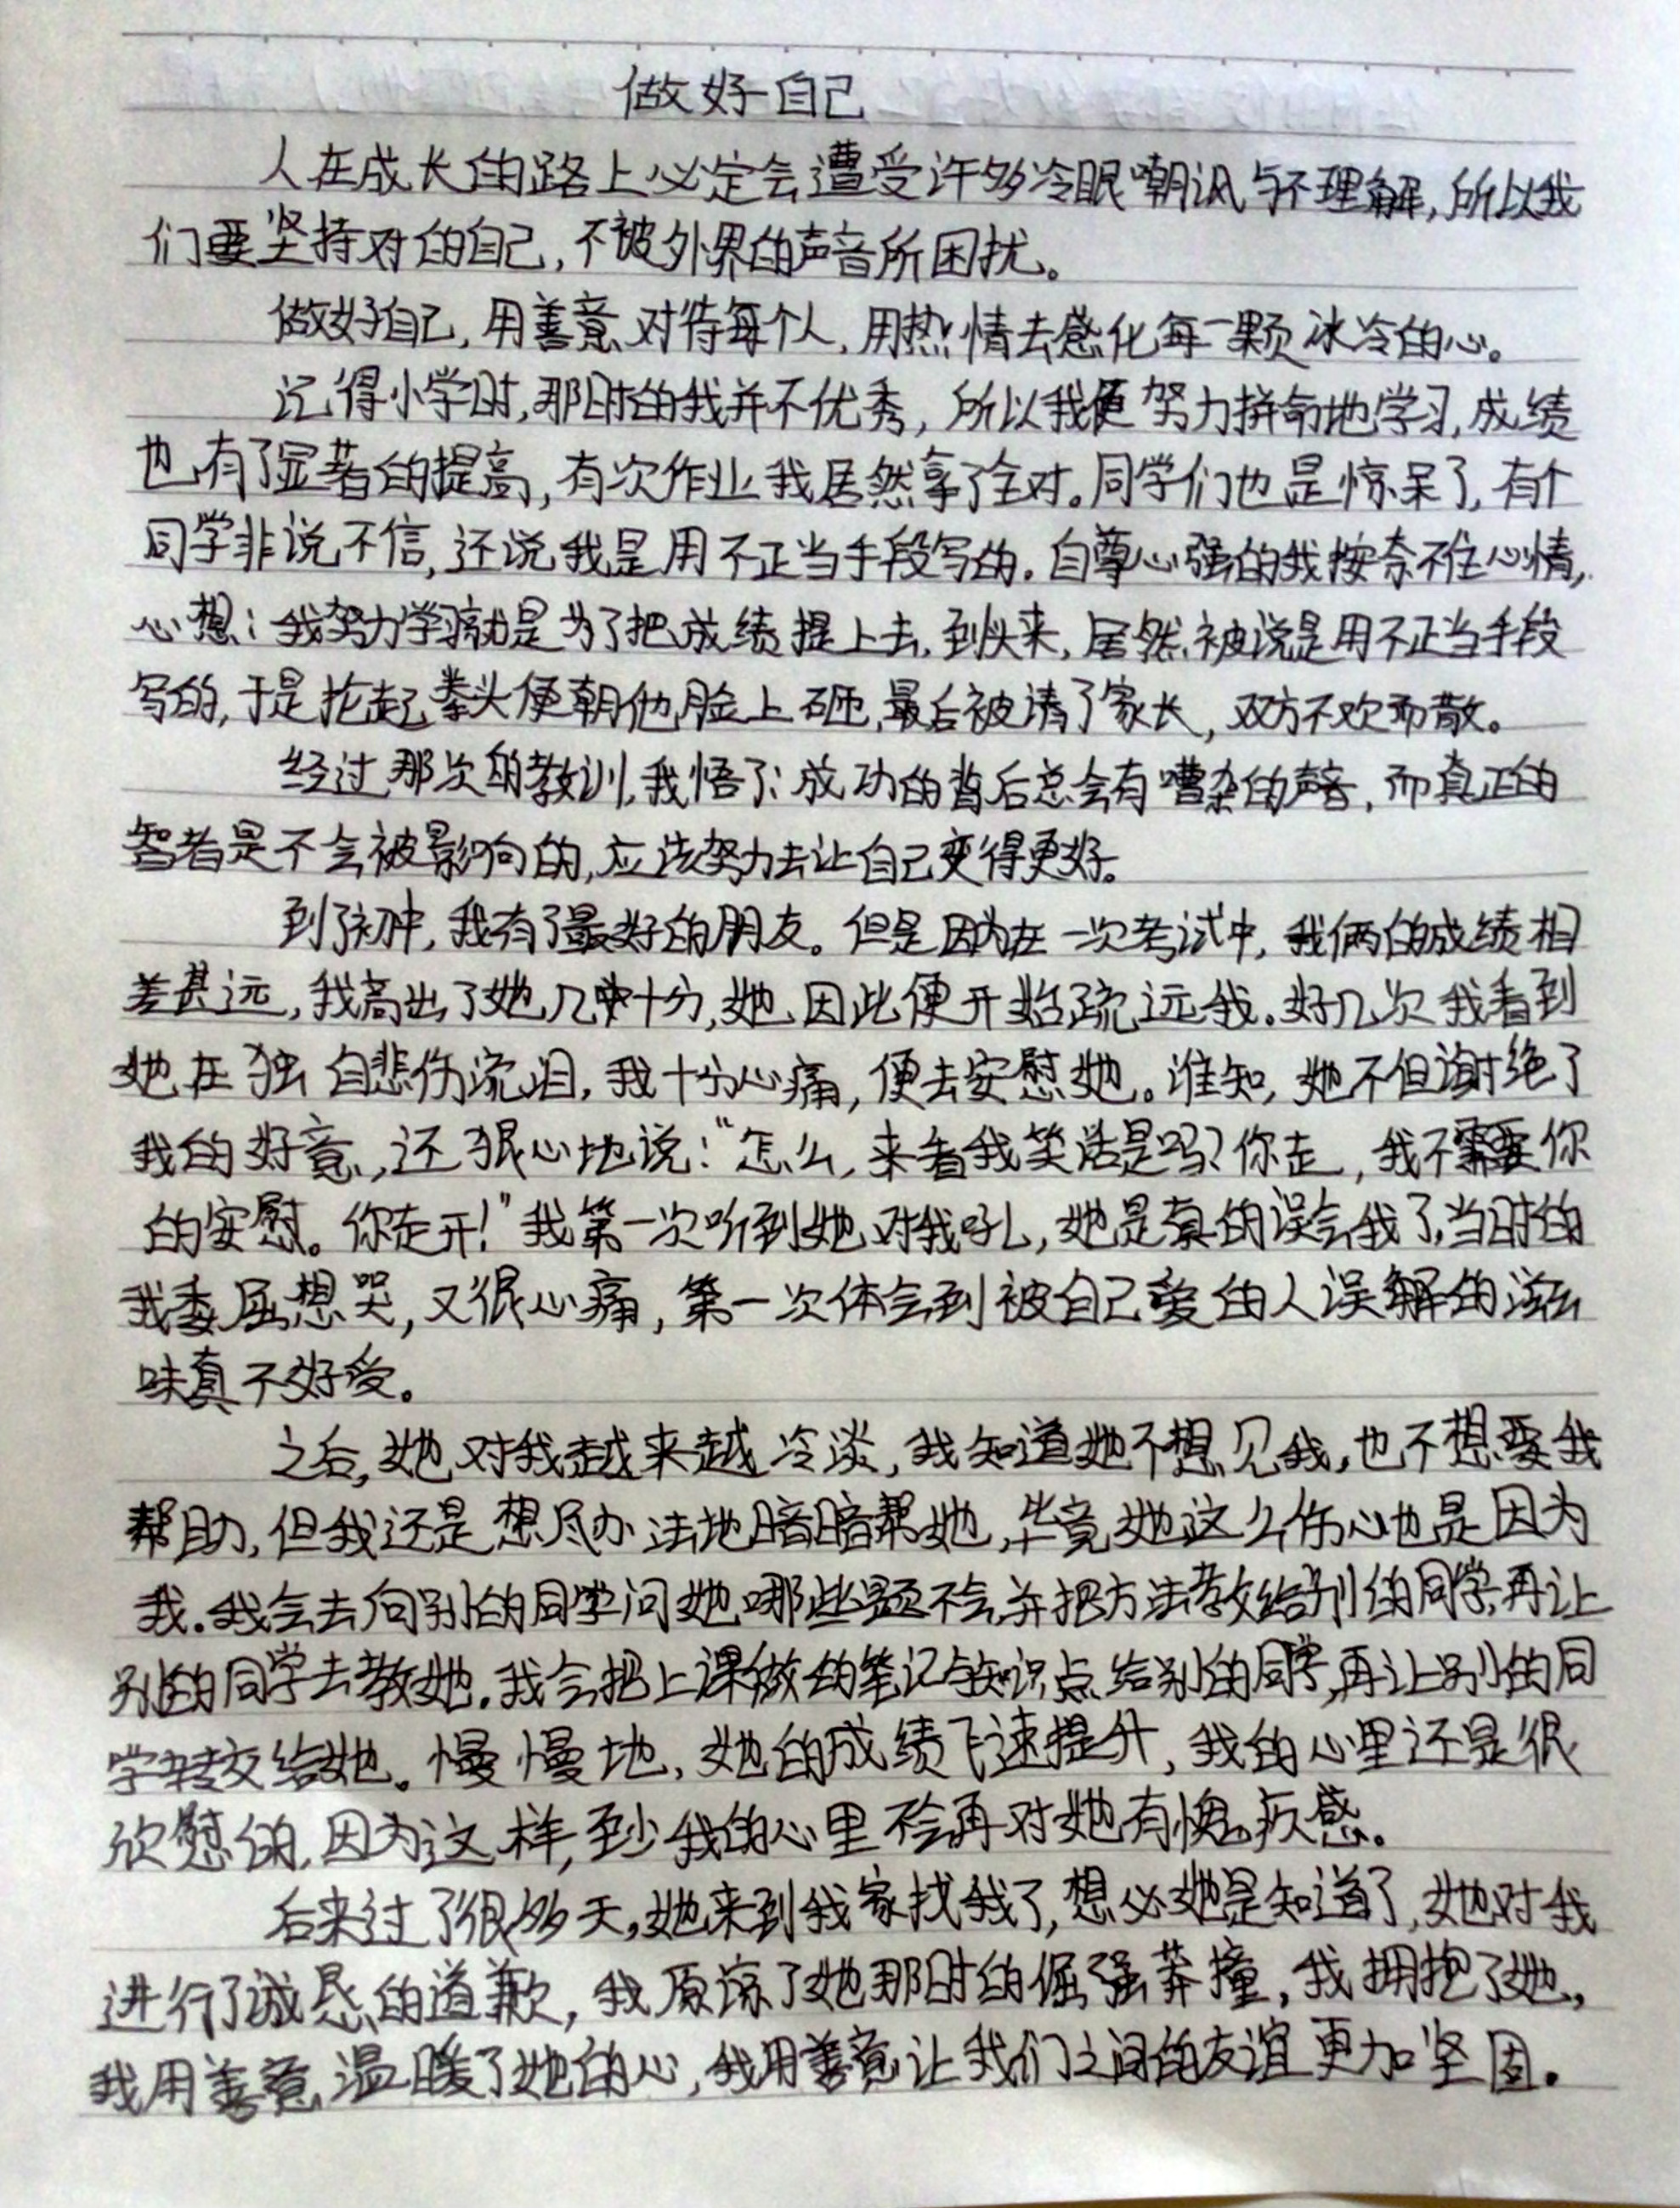 做好自己
人在成长的路上必定会遭受许多冷眼嘲讽与不理解,所以我
们要坚持对的自己,不被外界的声音所困扰。
做好自己,用善意对待每个人,用热情去感化每一颗冰冷的心。
记得小学时,那时的我并不优秀,所以我便努力拼命地学习,成绩
也有了显著的提高,有次作业我居然拿了全对。同学们也是惊呆了,有个
同学非说不信,还说我是用不正当手段写的。自尊心强的我按奈不住心情,
心想:我努力学习就是为了把成绩提上去,到头来,居然被说是用不正当手段
写的,于是抡起拳头便朝他脸上砸,最后被请了家长,双方不欢而散。
经过那次的教训,我悟了:成功的背后总会有嘈杂的声音,而真正的
智者是不会被影响的,应该努力去让自己变得更好。
到了初中,我有了最好的朋友。但是因为在一次考试中,我俩的成绩相
差甚远,我高出了她几十分,她因此便开始疏远我。好几次我看到
她在独自悲伤流泪,我十分心痛,便去安慰她。谁知,她不但谢绝了
我的好意,还狠心地说:“怎么,来看我笑话是吗?你走,我不需要你
的安慰。你走开!”我第一次听到她对我吼,她是真的误会我了,当时的
我委屈想哭,又很心痛,第一次体会到被自己爱的人误解的滋
味真不好受。
之后,她对我越来越冷淡,我知道她不想见我,也不想要我
帮助,但我还是想尽办法地暗暗帮她,毕竟她这么伤心也是因为
我。我会去向别的同学问她哪些题不会,并把方法教给别的同学,再让
别的同学去教她。我会把上课做的笔记与知识点给别的同学,再让别的同
学转交给她。慢慢地,她的成绩飞速提升,我的心里还是很
欣慰的,因为这样,至少我的心里不会再对她有愧疚感。
后来过了很多天,她来到我家找我了,想必她是知道了,她对我
进行了诚恳的道歉,我原谅了她那时的倔强莽撞,我拥抱了她,
我用善意温暖了她的心,我用善意让我们之间的友谊更加坚固。